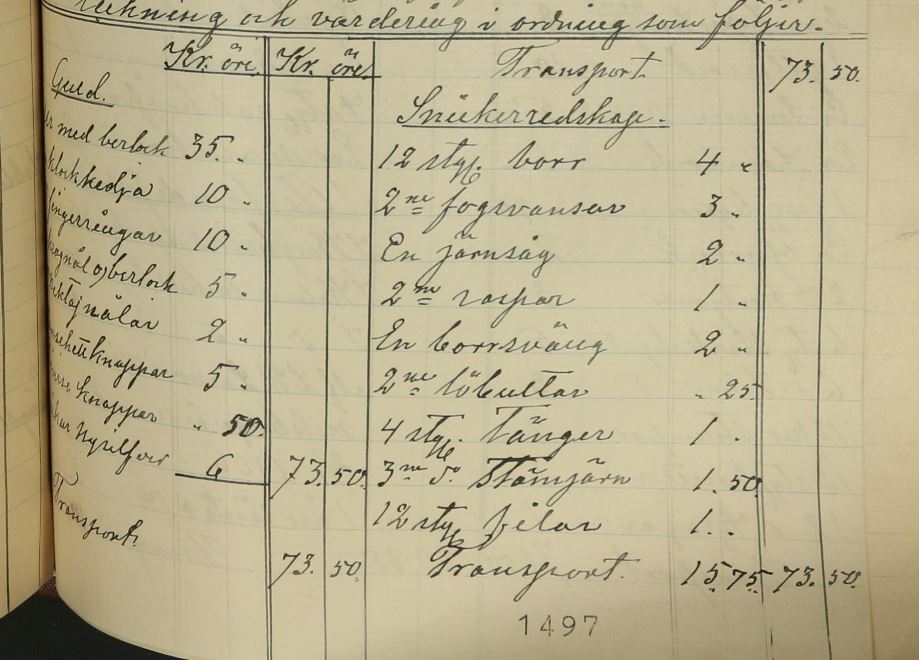 teckning och värdering i ordning som följer.
Kr. öre. Kr. öre.
Guld.
med berlock 35. "
klockkedja 10 "
fingerringar 10 "
berlock 5 "
nålar 2 "
knappar 5 "
knappar " 50.
Nysilfver 6 73. 50.
Transport. 73. 50.
Transport. 73. 50.
Snickerredskap.
12 styc. borr 4 "
2ne fogsvansar 3 "
En järnsåg 2 "
2ne raspar 1 "
En borrsväng 2 "
2ne lökultar " 25.
4 styc. Tänger 1 .
3ne do Stämjärn 1. 50
12 styc filar 1. .
Transport. 15. 75. 73. 50.
1497